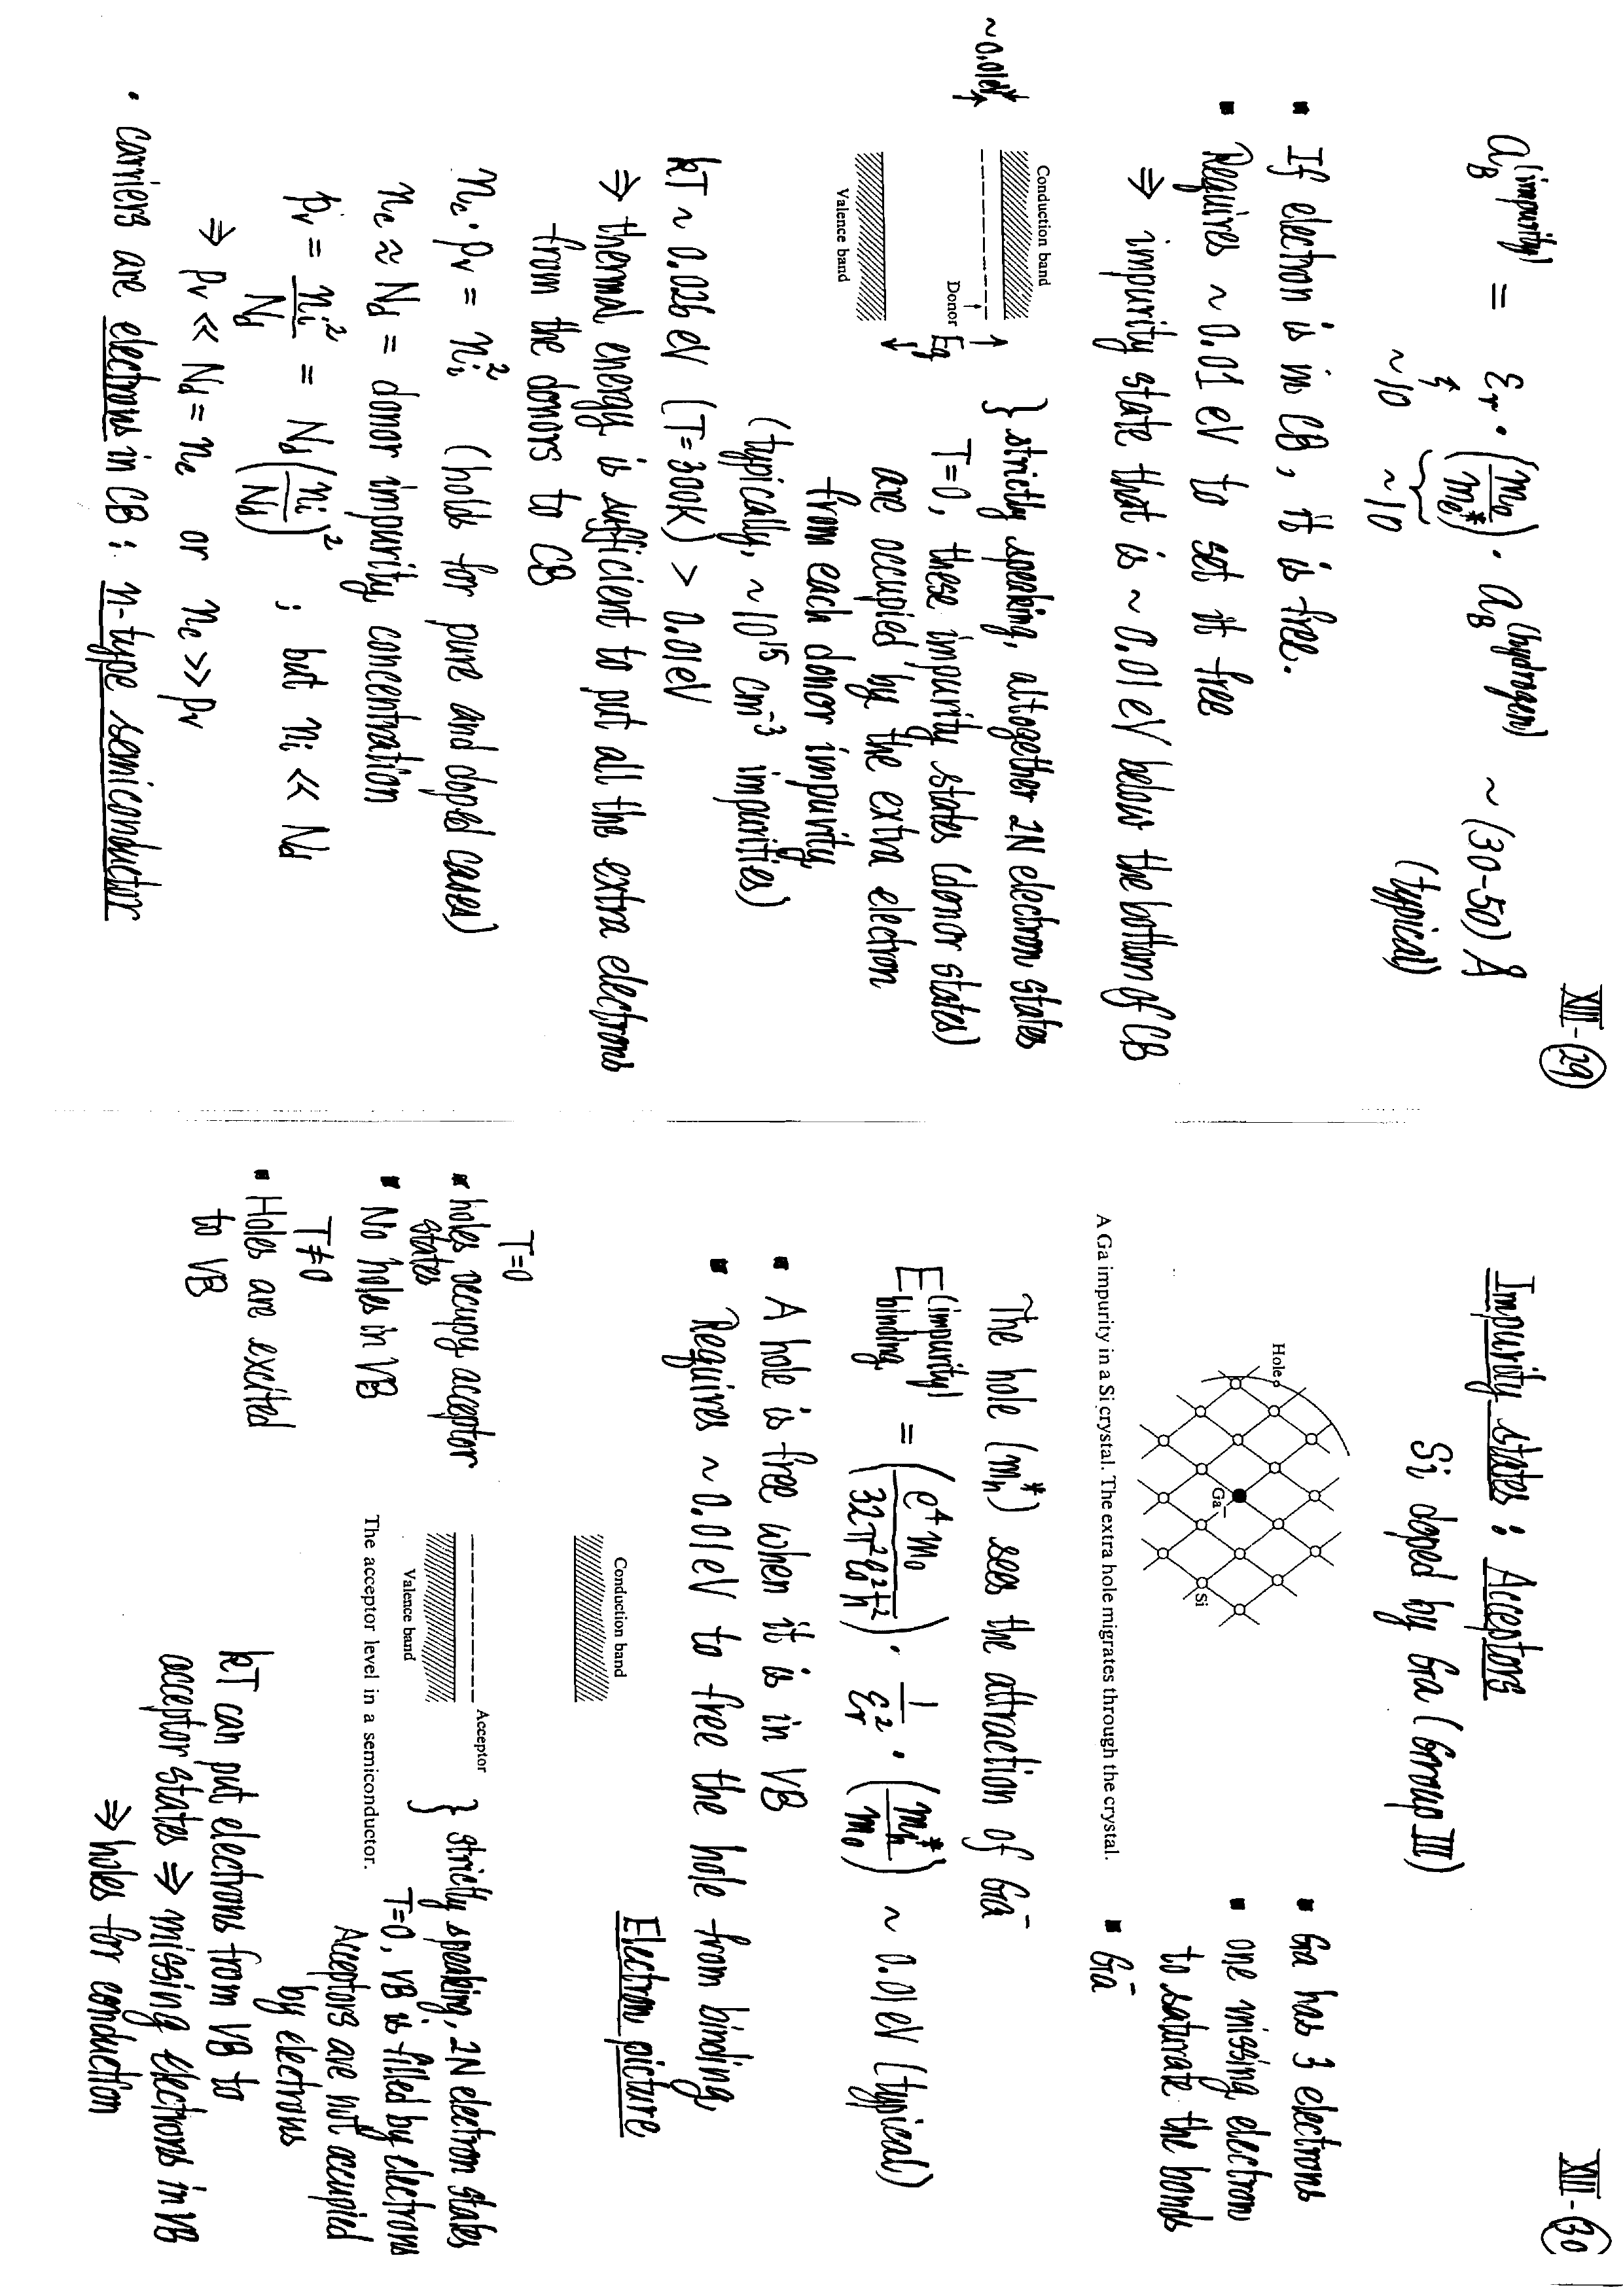 XIII-(29)
a_B^(impurity) = ε_r · (m_0/m_e*) · a_B^(hydrogen) ~ (30-50) Å
~10 ~10 (typical)
▪ If electron is in CB, it is free.
▪ Requires ~ 0.01 eV to set it free
⇒ impurity state that is ~ 0.01 eV below the bottom of CB
~0.01eV
Conduction band
Donor
E_g
Valence band
} strictly speaking, altogether 2N electron states
T=0, these impurity states (donor states)
are occupied by the extra electron
from each donor impurity
(typically, ~10^15 cm^-3 impurities)
kT ~ 0.026 eV (T=300K) > 0.01eV
⇒ thermal energy is sufficient to put all the extra electrons
from the donors to CB
n_c · p_v = n_i^2 (holds for pure and doped cases)
n_c ≈ N_d = donor impurity concentration
p_v = n_i^2/N_d = N_d (n_i/N_d)^2 ; but n_i << N_d
⇒ p_v << N_d = n_c or n_c >> p_v
• carriers are electrons in CB : n-type semiconductor
XIII-(30)
Impurity states : Acceptors
Si doped by Ga (Group III)
Hole
Ga⁻
Si
A Ga impurity in a Si crystal. The extra hole migrates through the crystal.
▪ Ga has 3 electrons
▪ one missing electron
to saturate the bonds
▪ Ga⁻
The hole (m_h*) sees the attraction of Ga⁻
E_binding^(impurity) = (e^4 m_0/32π^2ε_0^2ħ^2) · 1/ε_r^2 · (m_h*/m_0) ~ 0.01eV (typical)
▪ A hole is free when it is in VB
▪ Requires ~ 0.01eV to free the hole from binding
Electron picture
T=0
▪ holes occupy acceptor
states
▪ No holes in VB
T≠0
▪ Holes are excited
to VB
Conduction band
Acceptor
Valence band
The acceptor level in a semiconductor.
} strictly speaking, 2N electron states
T=0, VB is filled by electrons
Acceptors are not occupied
by electrons
kT can put electrons from VB to
acceptor states ⇒ missing electrons in VB
⇒ holes for conduction